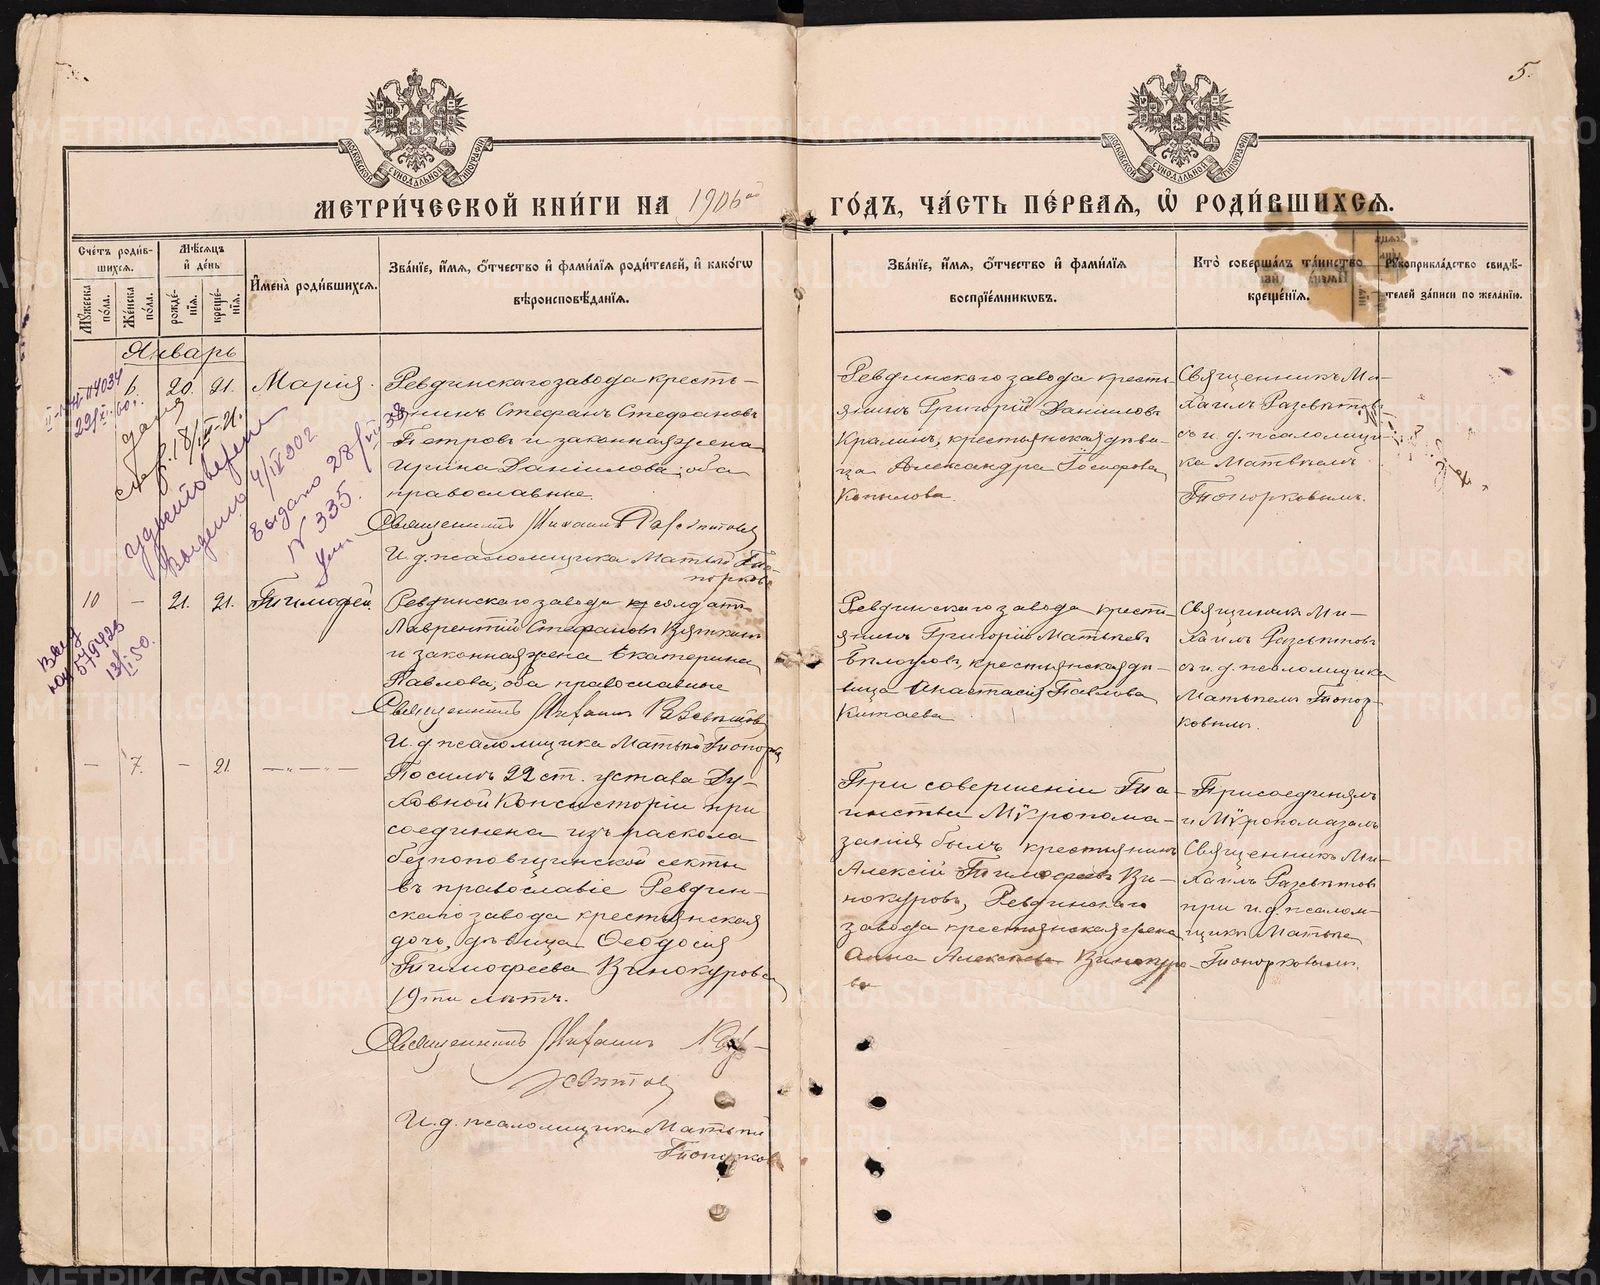 5.
МОСКОВСКОЙ СѴНОДАЛЬНОЙ ТИПОГРАФІИ
МОСКОВСКОЙ СѴНОДАЛЬНОЙ ТИПОГРАФІИ
МЕТРИ́ЧЕСКОЙ КНИ́ГИ НА 1906ой ГО́ДЪ, ЧА́СТЬ ПЕ́РВАЯ, Ѽ РОДИ́ВШИХСЯ.
Сче́тъ роди́в-
шихся.
Мꙋ́жеска по́ла.
Же́нска по́ла.
Мѣ́сяцъ и҆ де́нь
рожде́-
нїя.
креще́-
нїя.
И҆мена̀ роди́вшихся.
Зва́нїе, и҆́мя, ѻ҆́тчество и҆ фами́лїя роди́телей, и҆ како́гѡ
вѣроисповѣ́данїя.
Зва́нїе, и҆́мя, ѻ҆́тчество и҆ фами́лїя
воспрїе́мникѡвъ.
Кто̀ соверша́лъ та́инство
креще́нїя.
Рꙋкоприкла́дство свидѣ́-
телей за́писи по жела́нїю.
Январь
6. 20. 21. Марія.
Ревдинскаго завода кресть-
янинъ Стефанъ Стефановъ
Петровъ и законная жена
Ирина Даніилова; оба
православные.
Священникъ Михаилъ Разсвѣтовъ
И. д. псаломщика Матвѣй Топо-
порковъ
Ревдинскаго завода кресть-
янинъ Григорій Данииловъ
Кралинъ, крестьянская дѣви-
ца Александра
Копылова.
Священникъ Ми-
хаилъ Разсвѣтовъ
съ и. д. псаломщи-
ка Матвѣемъ
Топорковымъ.
выдано 28
N 335.
10 – 21. 21. Тимофей.
Ревдинскаго завода солдатъ
Лаврентій Стефановъ Вяткинъ
и законная жена Екатерина
Павлова; оба православные
Священникъ Михаилъ Разсвѣтовъ
И. д. псаломщика Матвѣй Топорковъ
Ревдинскаго завода кресть-
янинъ Григорій Матвѣевъ
Бѣлоусовъ, крестьянская дѣ-
вица Анастасія Павлова
Китаева
Священникъ Ми-
хаилъ Разсвѣтовъ
съ и. д. псаломщика
Матвѣемъ Топор-
ковымъ.
579426
13/I 50.
– 7. – 21. – „ – „ –
По силѣ 22 ст. устава Ду-
ховной Консисторіи при
соединена изъ раскола
безпоповщинской секты
въ православіе Ревдин-
скаго завода крестьянская
дочь, дѣвица Ѳеодосія
Тимофеева Винокурова
19ти лѣтъ.
Священникъ Михаилъ Раз-
свѣтовъ
И. д. псаломщика Матвѣй
Топорковъ
При совершеніи Та-
инства Мѵропома-
занія былъ крестьянинъ
Алексій Тимофеевъ Ви-
нокуровъ, Ревдинскаго
завода крестьянская жена
Анна Алексѣева Винокуро-
ва
Присоединялъ
и Мѵропомазалъ
Священникъ Ми-
хаилъ Разсвѣтовъ
при и. д. псалом-
щика Матвѣѣ
Топорковымъ.
METRIKI.GASO-URAL.RU